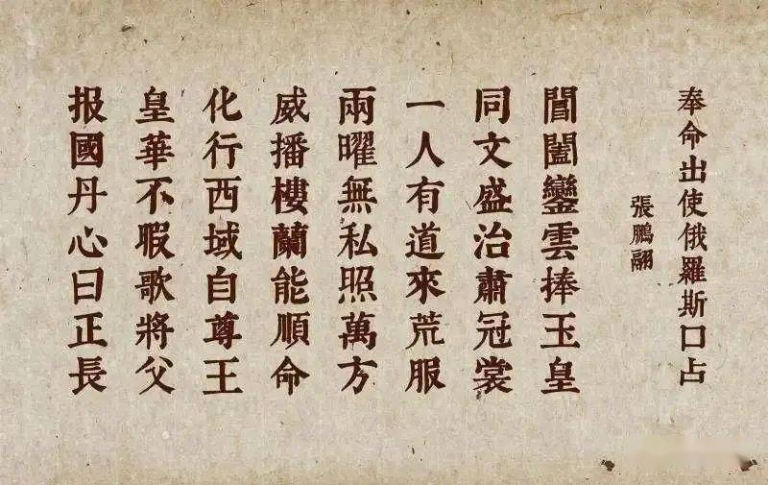 奉命出使俄羅斯口占
張鵬翮
閶闔鑾雲捧玉皇
同文盛治肅冠裳
一人有道來荒服
兩曜無私照萬方
威播樓蘭能順命
化行西域自尊王
皇華不暇歌將父
报國丹心曰正長